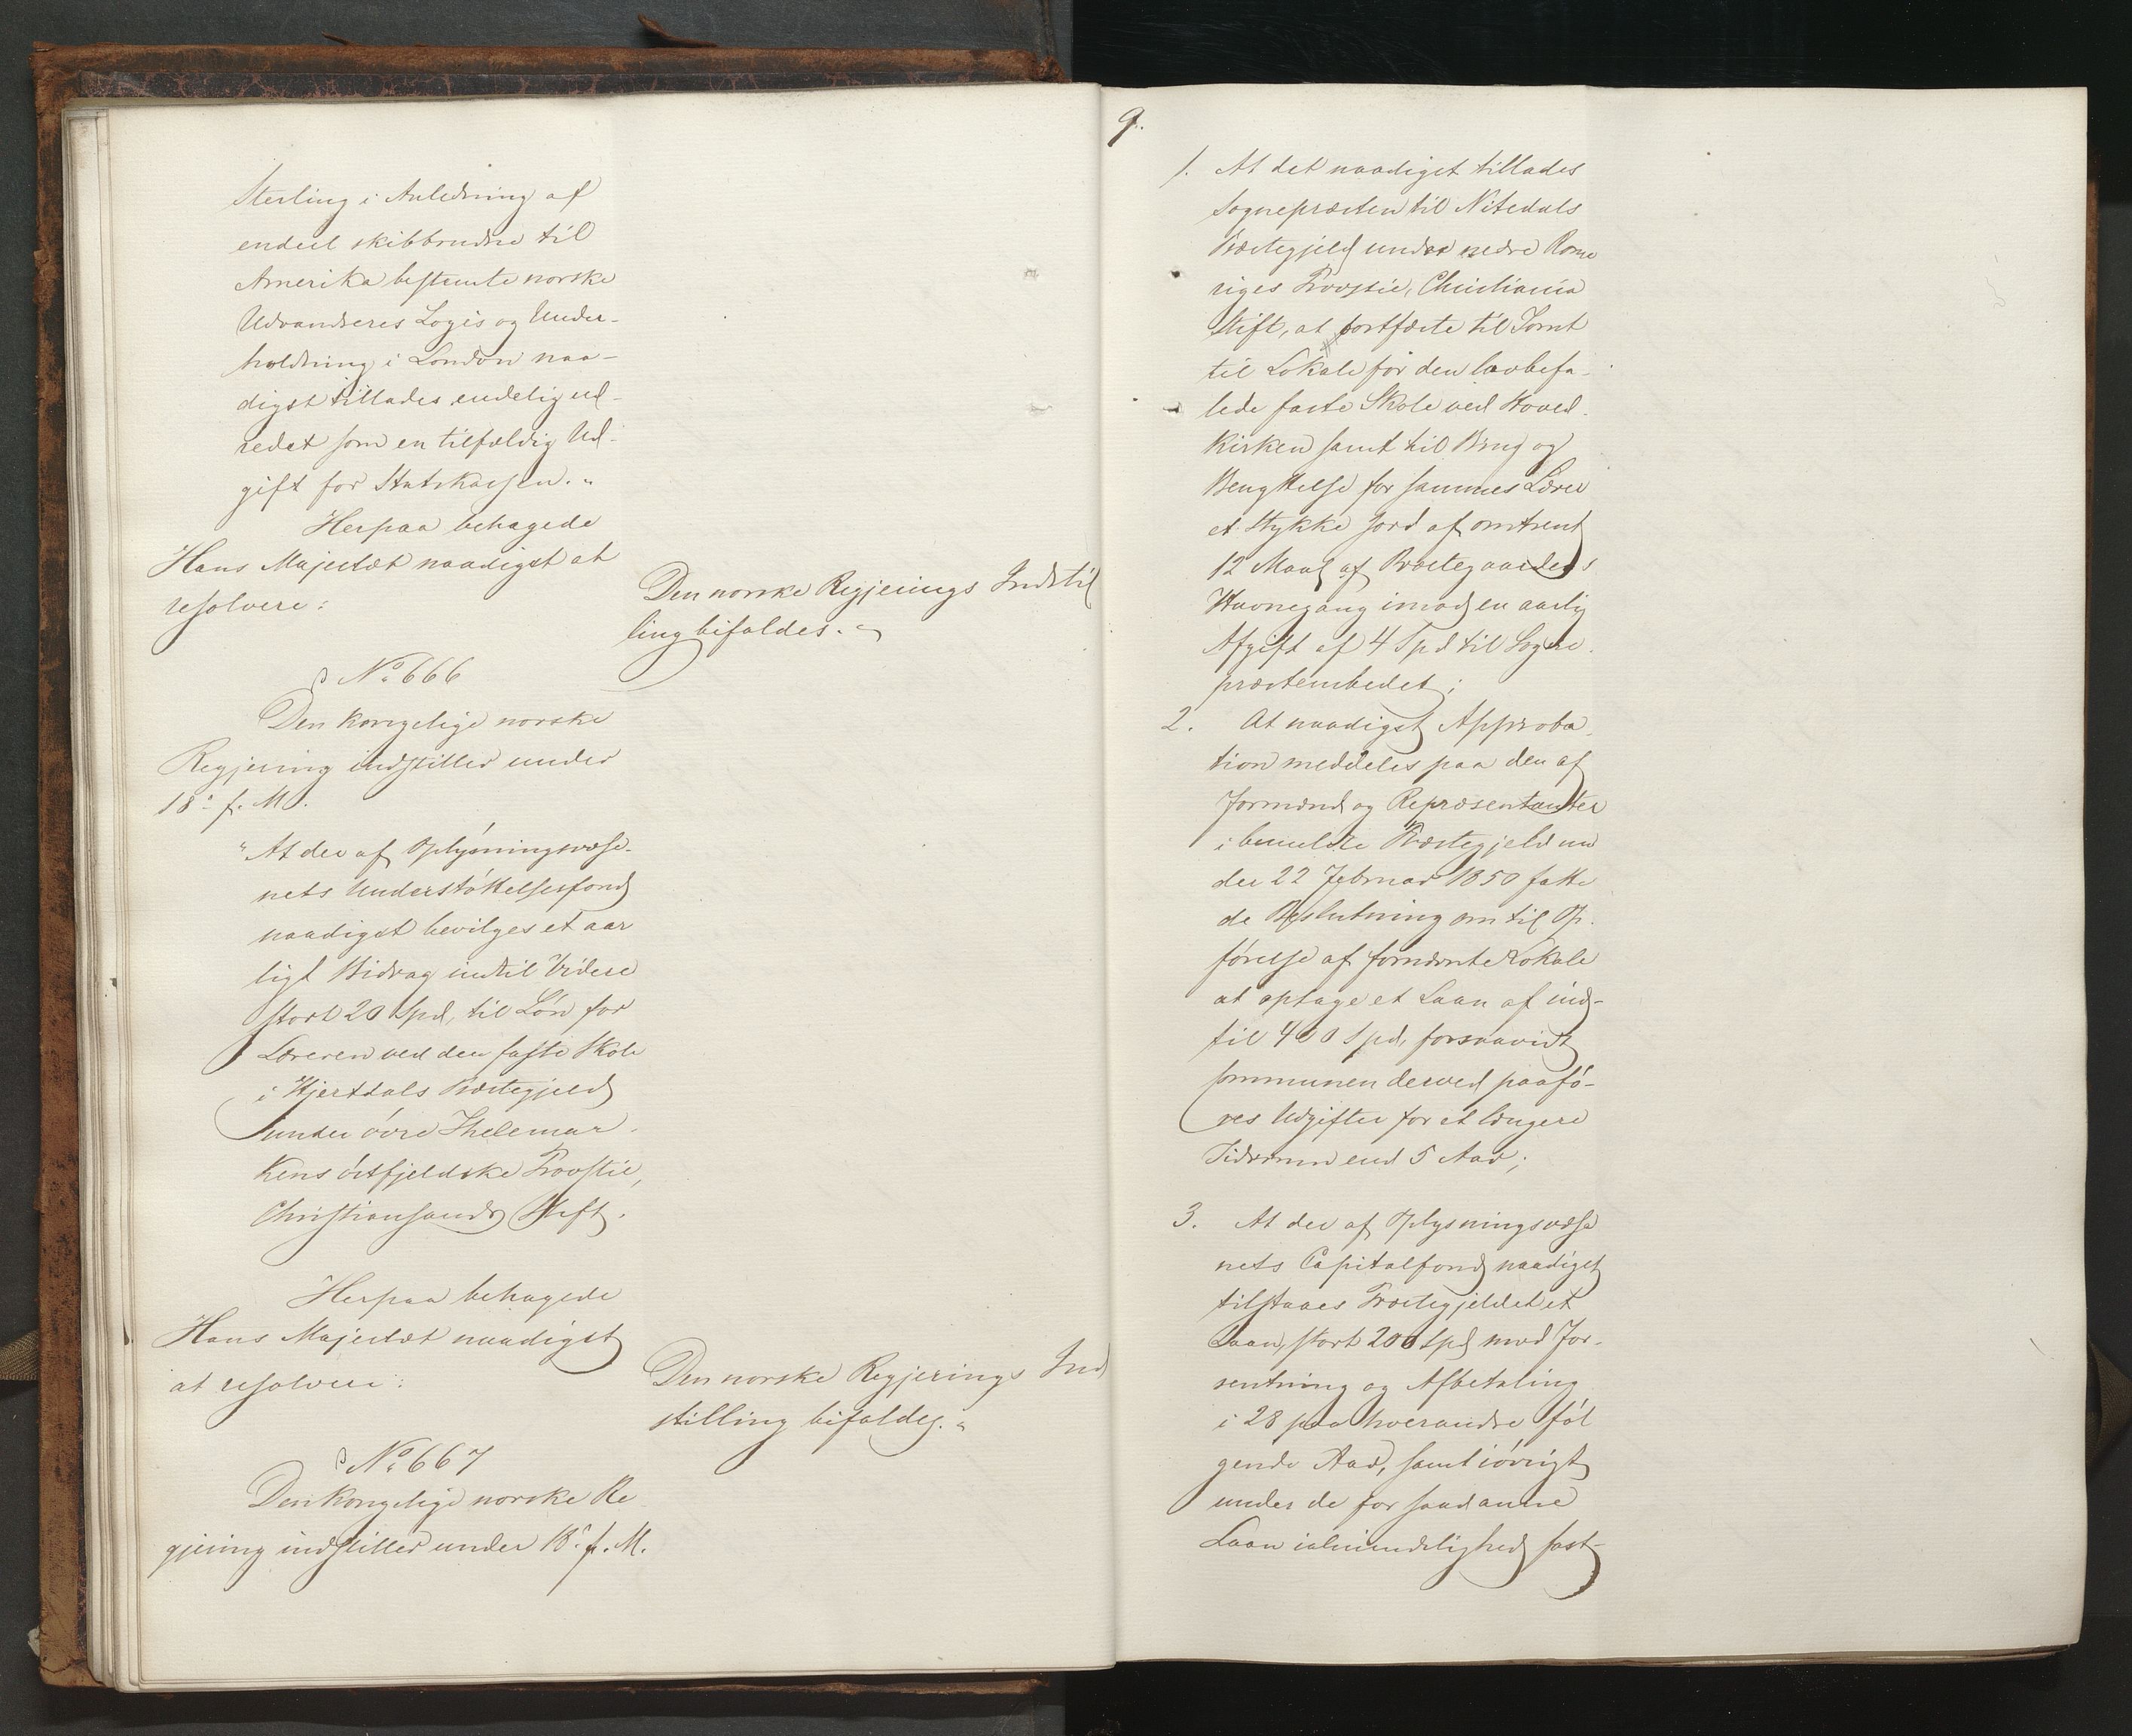 Sterling i Anledning af
endeel skibbrudne til
Amerika bestemte norske
Udvandreres Logis og Under-
holdning i London naa-
digst tillades endelig ud-
redet som en tilfældig Ud-
gift for Statskassen."
Herpaa behagede
Hans Majestæt naadigst at
resolvere:
Den norske Regjerings Indstil
ling bifaldes."
No 666
Den kongelige norske
Regjering indstiller under
18 f. M.
"At der af Oplysningsvæse-
nets Understöttelsesfond
naadigst bevilges et aar
ligt Bidrag indtil Videre
stort 20 Spd, til Lön for
Læreren ved den faste Skole
i Hjertdals Præstegjeld
under övre Thelemar-
kens östfjeldske Provstie,
Christiansands Stift.
Herpaa behagede
Hans Majestæt naadigst
at resolvere:
Den norske Regjerings Ind
stilling bifaldes."
No 667
Den Kongelige norske Re
gjering indstiller under 18. f. M.
9.
1. At det naadigst tillades
Sognepræsten til Nitedals
Præstegjeld under nedre Rome
riges Provstie, Christiania
Stift, at bortfæste til Tomt
til Lokale for den lovbefa-
lede faste Skole ved Hoved-
kirken samt til Brug og
Benyttelse for sammes Lærer
et Stykke Jord af omtrent
12 Maal af Præstegaardens
Havnegang imod en aarlig
Afgift af 4 Spd til Sogne-
præstembedet;
2. At naadigst Approba-
tion meddeles paa den af
Formænd og Repræsentanter
i bemeldte Præstegjeld un
der 22 Februar 1850 fatte
de Beslutning om til Op-
förelse af fornævnte Lokale
at optage et Laan af ind-
til 400 Spd, forsaavidt
Communen derved paafö-
res Udgifter for et længere
Tidsrum end 5 Aar;
3. At der af Oplysningsvæse
nets Capitalfond naadigst
tilstaaes Præstegjeldet et
Laan, stort 200 Spd mod For-
rentning og Afbetaling
i 28 paa hverandre föl
gende Aar, samt iövrigt
under de for saadanne
Laan i almindelighed fast-